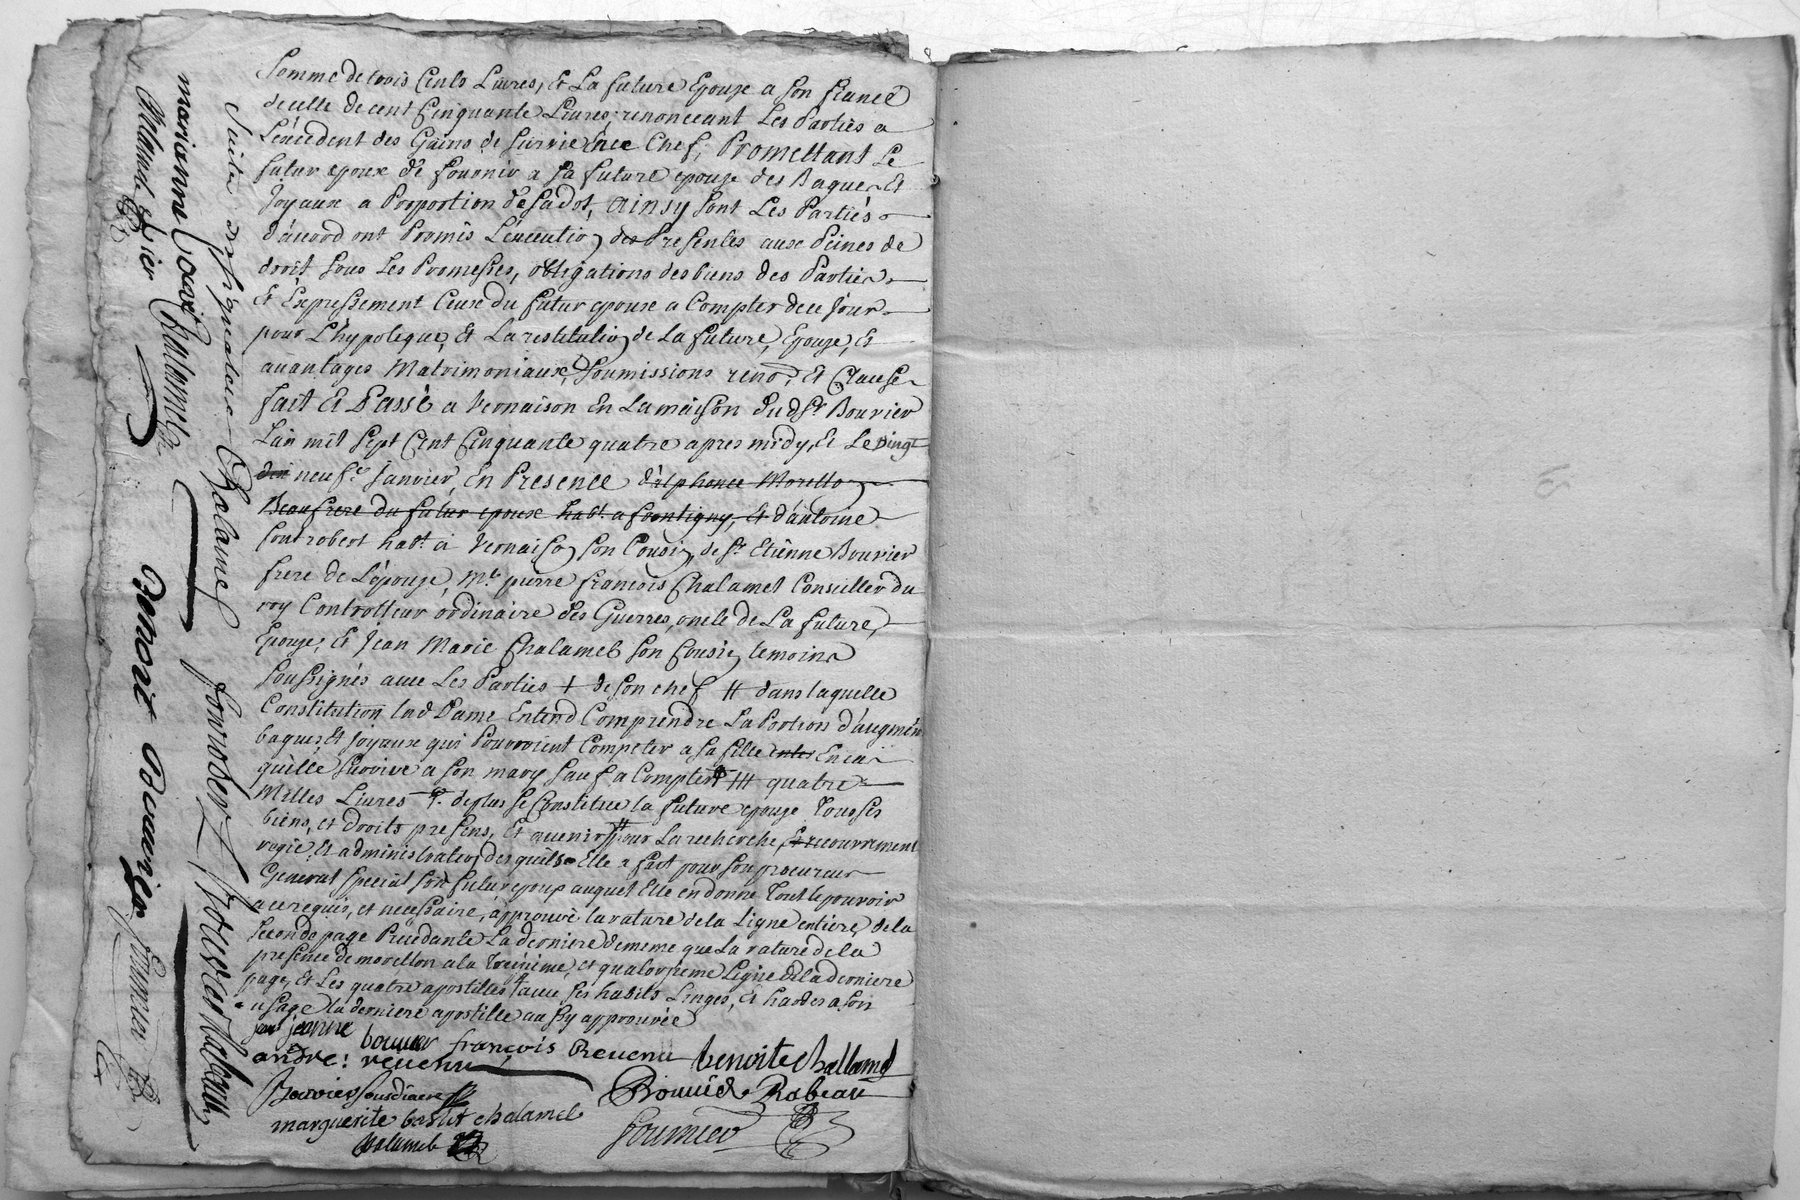 Somme de trois Cents Livres, Et La future Epouse a son fiancé
de celle de cent Cinquante Livres, renonceant Les Parties a
L'excedent des Gains de survie Chef; Promettant Le
futur epoux de fournir a sa future epouse des Bagues Et
Joyaux a Proportion de sa dot, Ainsy sont Les Parties
d'accord ont Promis L'execution des Presentes aux Peines de
droit sous Les Promesses, obligations des biens des Parties
Et Expressement Ceux du futur epoux a Compter de ce Jour
pour L'hypoteque, Et La restitution de La future, Epouse, Et
avantages Matrimoniaux, Soumissions reno, Et Clauses
fait Et Passé a Vernaison En La maison Dud Sr Bouvier
L'an mil sept Cent Cinquante quatre apres midy, Et Le vingt
neuf Janvier, En Presence d'alphonce Morellon
Beaufrere du futur epoux habt a frontigny, Et d'antoine
fontrobert habt a Vernaison son Cousin, de Sr Etienne Bouvier
frere de L'épouse, Mr pierre francois Chalamel Conseiller du
roy Controlleur ordinaire des Guerres, oncle de La future,
Epouse, Et Jean Marie Chalamel son Cousin temoins
soussignés avec Les Parties + de son chef # dans laquelle
Constitution lad Dame Entend Comprendre La Portion d'augment
bagues, Et Joyaux qui Pourroient Competer a sa fille En cas
qu'elle survive a son mary sauf a Compter ### quatre
Milles Livres de plus se Constitue la future epouse Tous ses
biens, et droits presens, Et avenir pour La recherche, Et recouvrement
regie, Et administration desquels Elle a fait pour son procureur
General special son futur epoux auquel Elle en donne Tout le pouvoir
a ce requis, et necessaire, approuvé la rature de la Ligne entiere de la
seconde page Précedante La derniere de meme que La rature de la
presence de morellon a la Treizieme, et quatorzieme Ligne de la derniere
page, Et Les quatre apostilles avec ses habits Linges, Et hardes a son
usage la derniere apostille aussy approuvée
jeanne bouvier françois Revenu benoite Challamel
andre: revenu
Bouvier Sousdiacre Bouvier Rabeau
marguerite basset chalamel
Chalamel fournier
Suite de signature Chalamel
marianne Chalamel fontrobert
Benoit Bouvier fournier